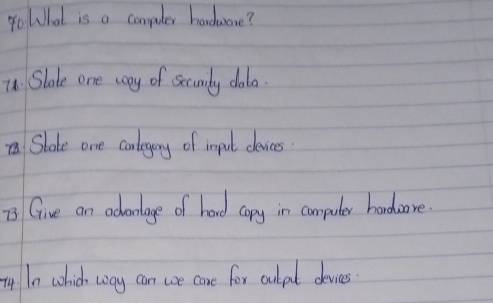 70 What is a computer hardware?
71. State one way of security data.
72 State one category of input devices.
73 Give an advantage of hard copy in computer hardware.
74 In which way can we care for output devices.